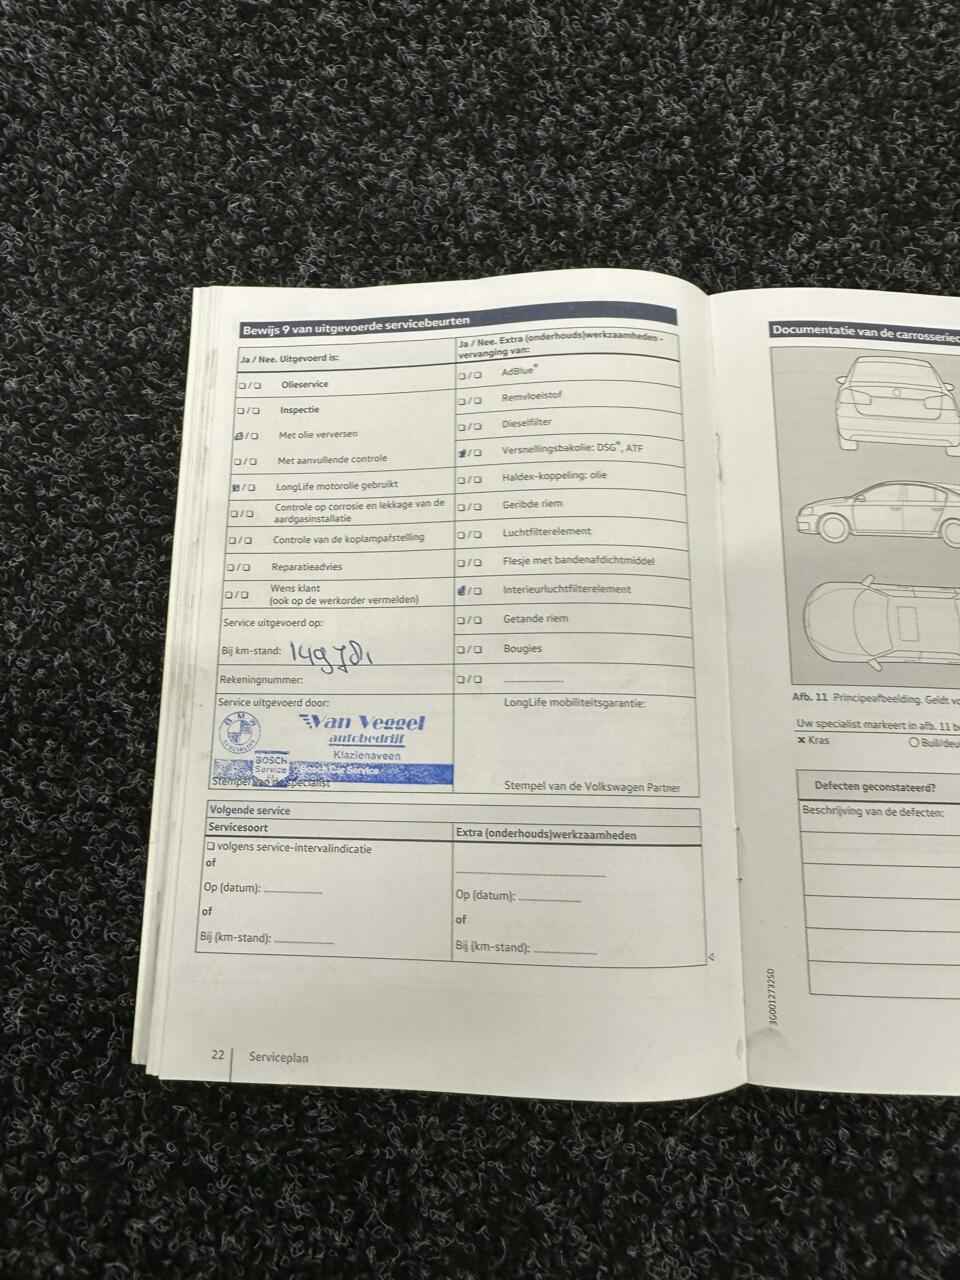 Bewijs 9 van uitgevoerde servicebeurten
Ja / Nee. Uitgevoerd is:
❑ / ❑ Olieservice
❑ / ❑ Inspectie
/ ❑ Met olie verversen
❑ / ❑ Met aanvullende controle
/ ❑ LongLife motorolie gebruikt
❑ / ❑ Controle op corrosie en lekkage van de
aardgasinstallatie
❑ / ❑ Controle van de koplampafstelling
❑ / ❑ Reparatieadvies
❑ / ❑ Wens klant
(ook op de werkorder vermelden)
Service uitgevoerd op:
Bij km-stand:
Rekeningnummer:
Service uitgevoerd door:
BMW
SPECIALIST
Van Veggel
autobedrijf
Klazienaveen
BOSCH
Service
Bosch Car Service
Stempel van de specialist
Ja / Nee. Extra (onderhouds)werkzaamheden -
vervanging van:
❑ / ❑ AdBlue®
❑ / ❑ Remvloeistof
❑ / ❑ Dieselfilter
/ ❑ Versnellingsbakolie: DSG®, ATF
❑ / ❑ Haldex-koppeling: olie
❑ / ❑ Geribde riem
❑ / ❑ Luchtfilterelement
❑ / ❑ Flesje met bandenafdichtmiddel
/ ❑ Interieurluchtfilterelement
❑ / ❑ Getande riem
❑ / ❑ Bougies
❑ / ❑
LongLife mobiliteitsgarantie:
Stempel van de Volkswagen Partner
Volgende service
Servicesoort
❑ volgens service-intervalindicatie
of
Op (datum):
of
Bij (km-stand):
Extra (onderhouds)werkzaamheden
Op (datum):
of
Bij (km-stand):
22 Serviceplan
Documentatie van de carrosserie
Afb. 11 Principeafbeelding. Geldt
Uw specialist markeert in afb. 11
× Kras
Defecten geconstateerd?
Beschrijving van de defecten:
3G0012732SD